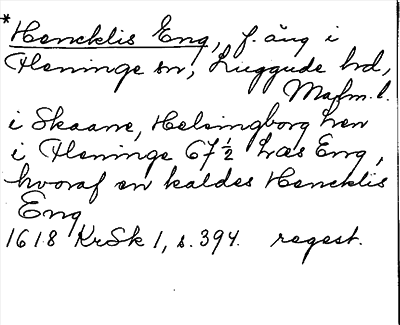 * Hencklis Eng, f. äng i
Fleninge sn, Luggude hd,
Mafm. l.
i Skaane, Helsingborg len
i Fleninge 67½ Læs Eng,
hvoraf en kaldes Hencklis
Eng
1618 KrSk 1, s. 394. regest.